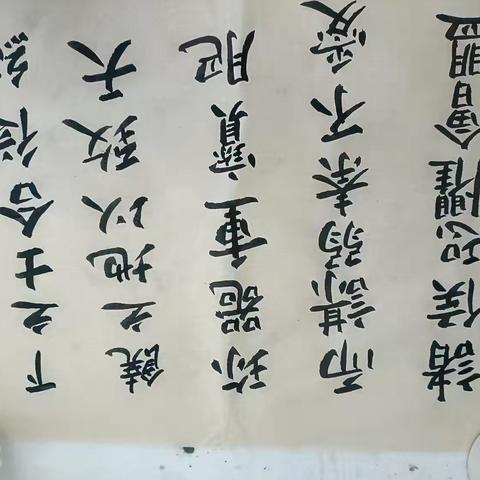 諸侯恐懼會盟
而謀弱秦不愛
珎器重寶肥
饒之地以致天
下之士合從締